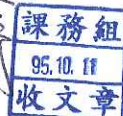 課務組
95.10.11
收文章